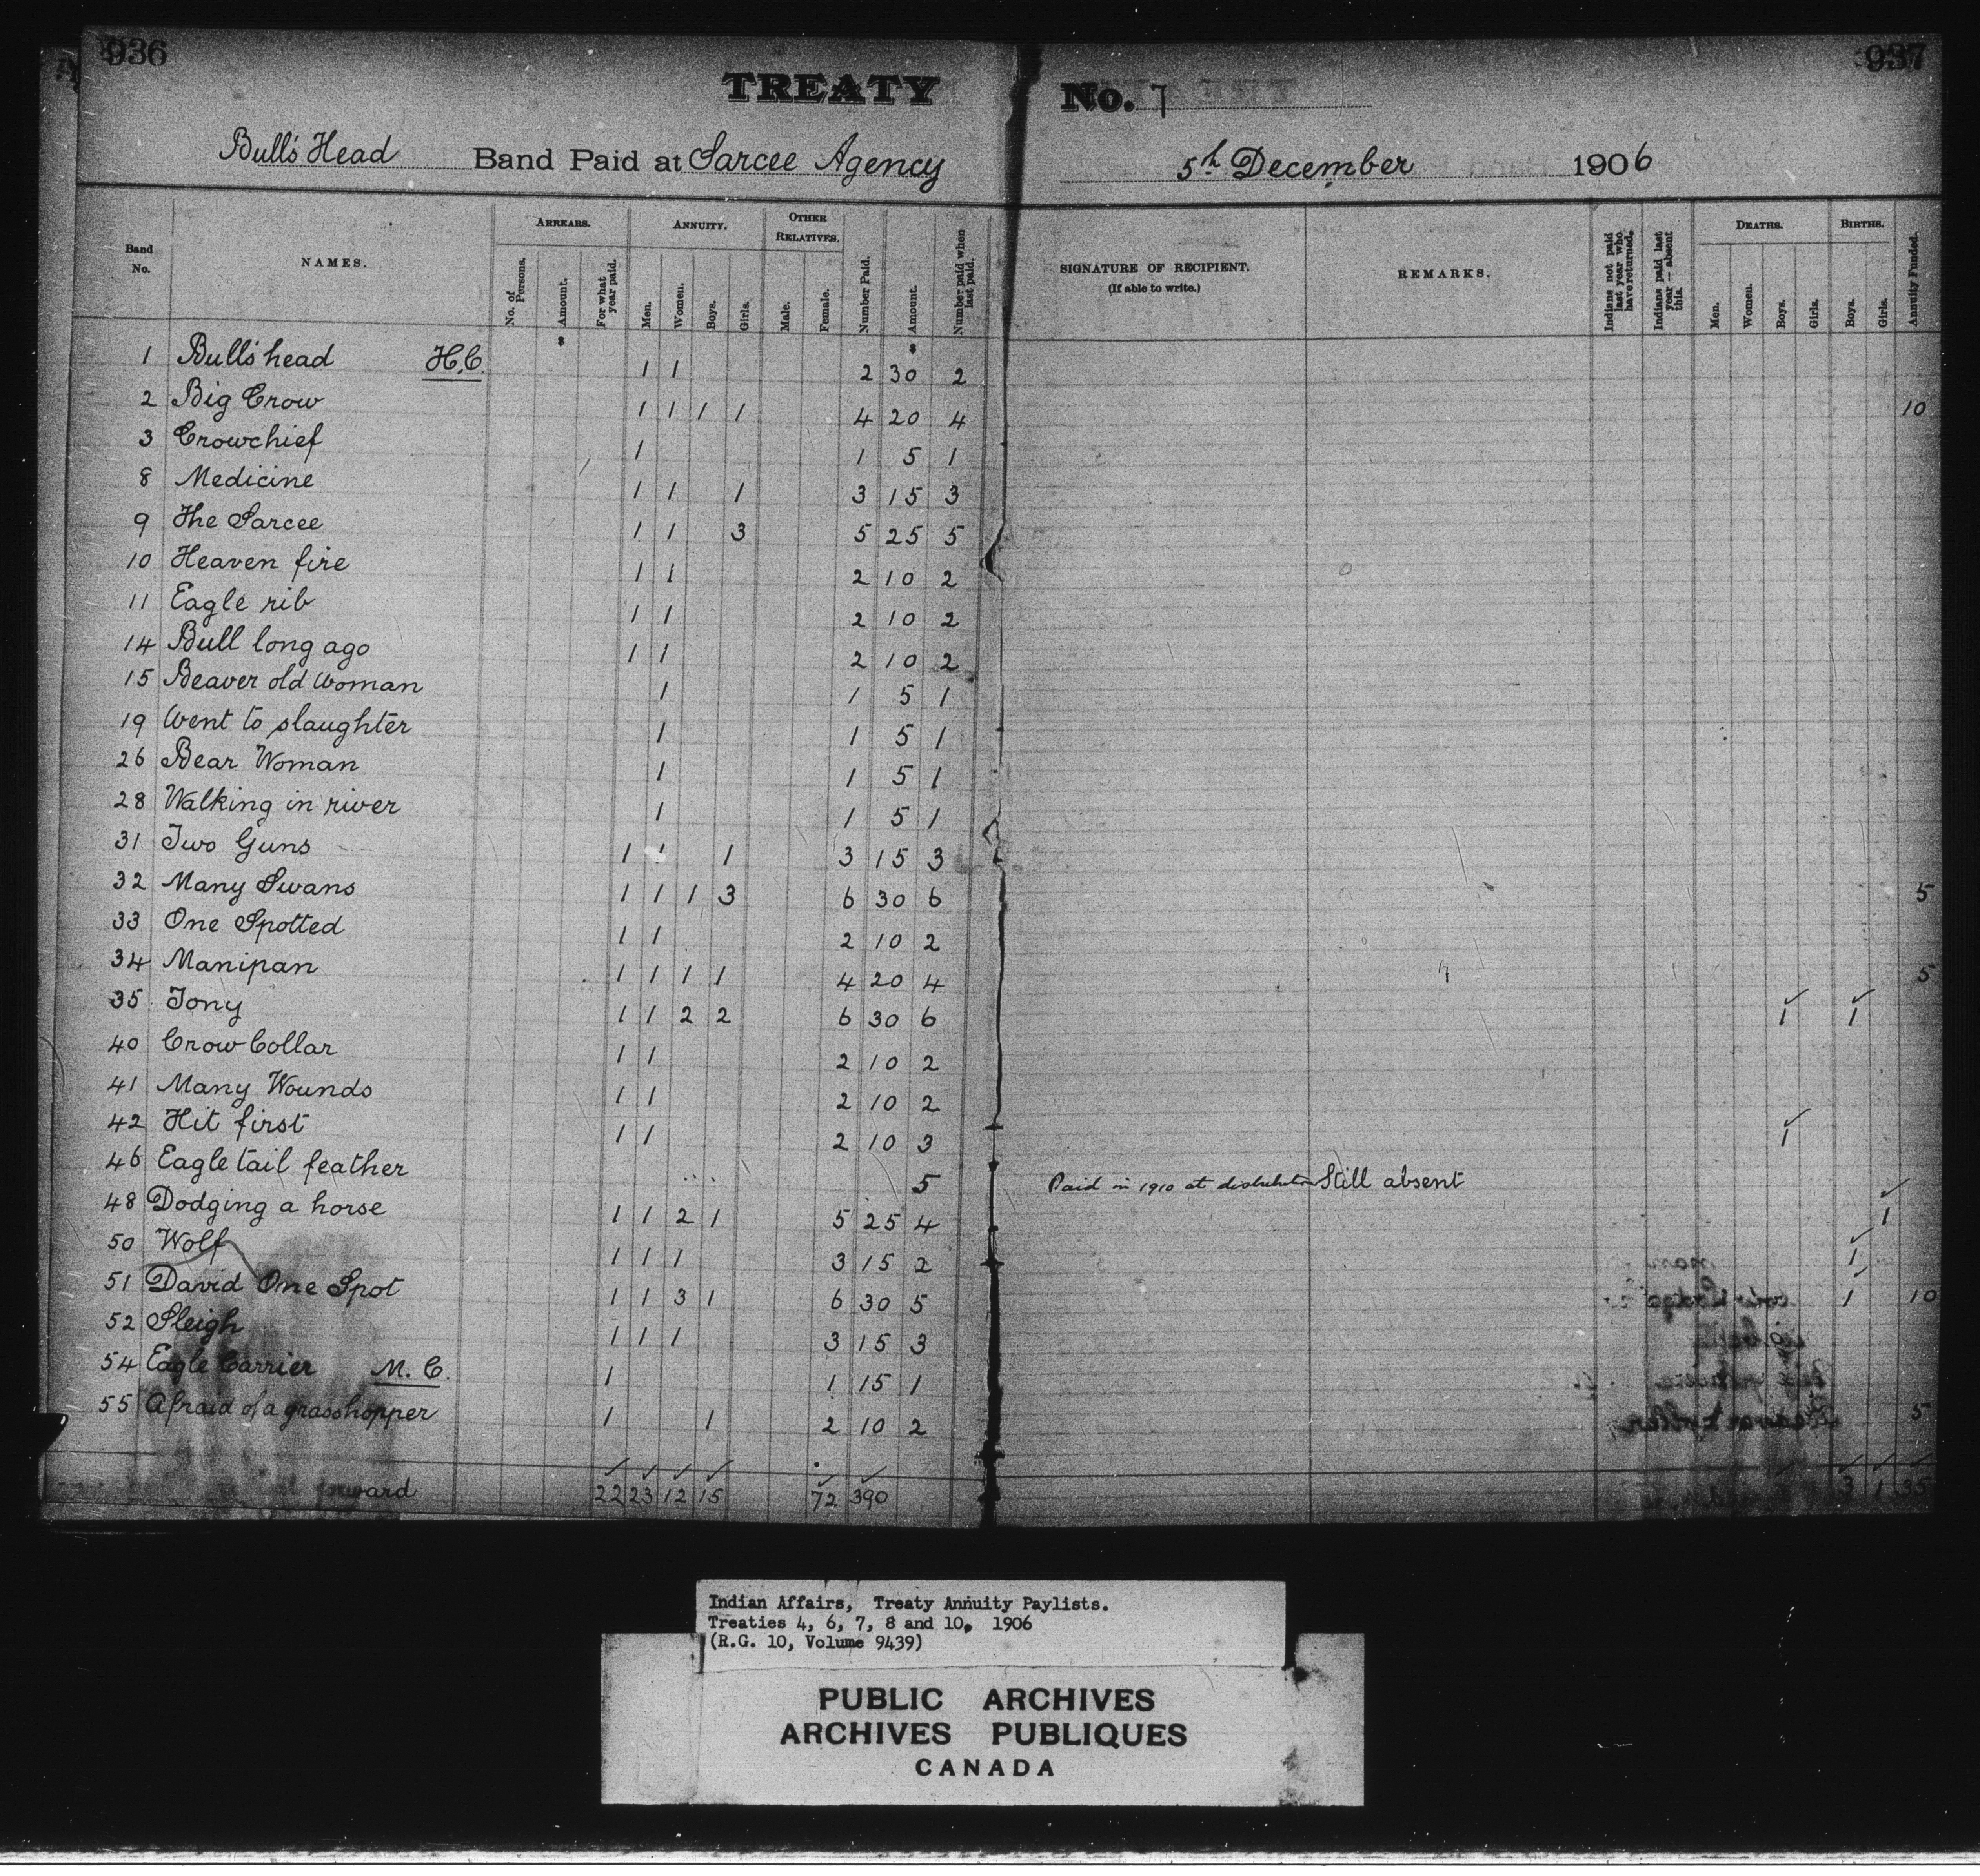 936
937
TREATY No. 7
Bull's Head Band Paid at Sarcee Agency 5th December 1906
Band No.
NAMES.
ARREARS.
No. of Persons.
Amount.
For what year paid.
ANNUITY.
Men.
Women.
Boys.
Girls.
OTHER RELATIVES.
Male.
Female.
Number Paid.
Amount.
Number paid when last paid.
SIGNATURE OF RECIPIENT.
(If able to write.)
REMARKS.
Indians not paid last year who have returned.
Indians paid last year — absent this.
DEATHS.
Men.
Women.
Boys.
Girls.
BIRTHS.
Boys.
Girls.
Annuity Funded.
$ $
1 Bull's head H.C. 1 1 2 30 2
2 Big Crow 1 1 1 1 4 20 4 10
3 Crowchief 1 1 5 1
8 Medicine 1 1 1 3 15 3
9 The Sarcee 1 1 3 5 25 5
10 Heaven fire 1 1 2 10 2
11 Eagle rib 1 1 2 10 2
14 Bull long ago 1 1 2 10 2
15 Beaver old woman 1 1 5 1
19 Went to slaughter 1 1 5 1
26 Bear Woman 1 1 5 1
28 Walking in river 1 1 5 1
31 Two Guns 1 1 1 3 15 3
32 Many Swans 1 1 1 3 6 30 6 5
33 One Spotted 1 1 2 10 2
34 Manipan 1 1 1 1 4 20 4 5
35 Tony 1 1 2 2 6 30 6 1 1
40 Crow Collar 1 1 2 10 2
41 Many Wounds 1 1 2 10 2
42 Hit first 1 1 2 10 3 1
46 Eagle tail feather 5 Paid in 1910 at distribution Still absent
48 Dodging a horse 1 1 2 1 5 25 4 1
50 Wolf 1 1 1 3 15 2 1
51 David One Spot 1 1 3 1 6 30 5 1 10
52 Sleigh 1 1 1 3 15 3
54 Eagle Carrier M.C. 1 1 15 1
55 Afraid of a grasshopper 1 1 2 10 2 5
forward 22 23 12 15 72 390 3 1 35
Indian Affairs, Treaty Annuity Paylists.
Treaties 4, 6, 7, 8 and 10, 1906
(R.G. 10, Volume 9439)
PUBLIC ARCHIVES
ARCHIVES PUBLIQUES
CANADA